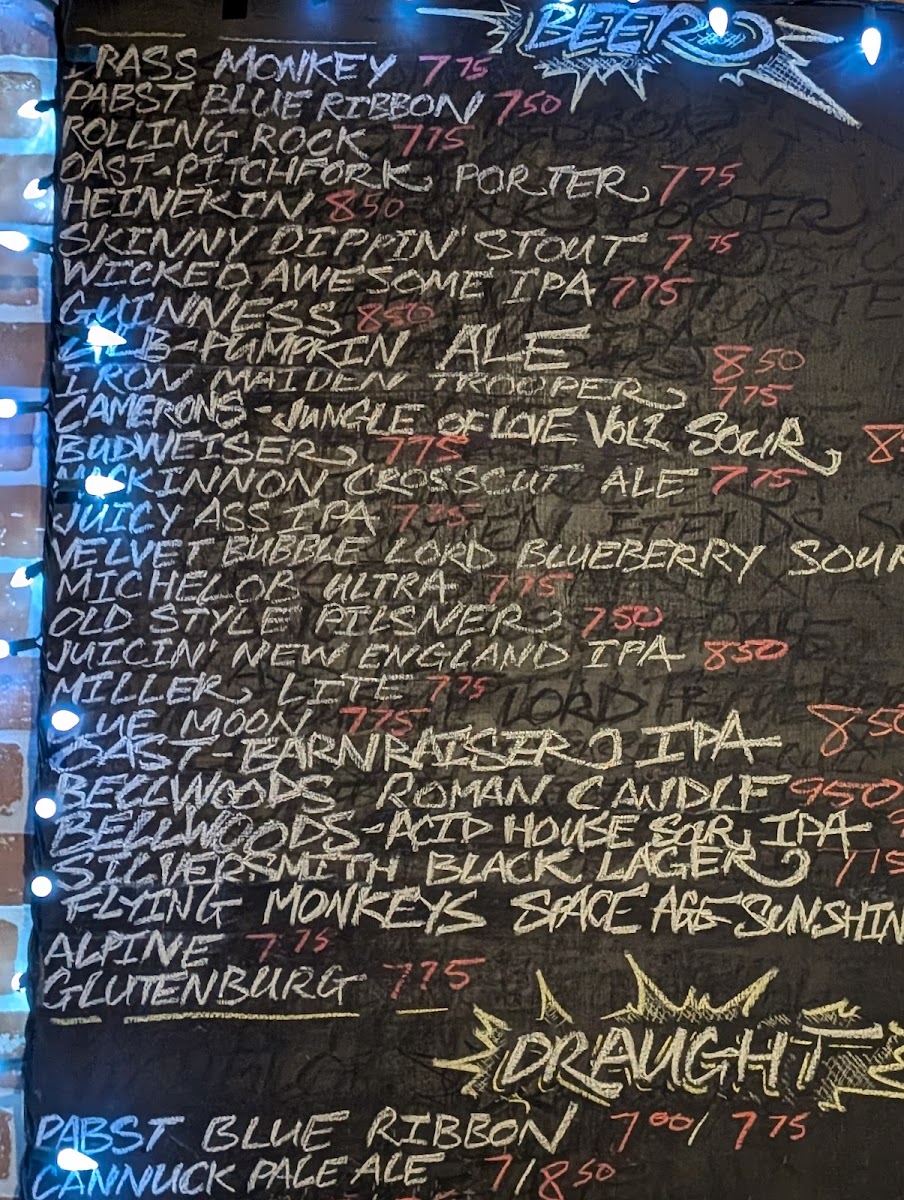 BEER
BRASS MONKEY 7 75
PABST BLUE RIBBON 7 50
ROLLING ROCK 7 75
OAST-PITCHFORK PORTER 7 75
HEINEKIN 8 50
SKINNY DIPPIN' STOUT 7 75
WICKED AWESOME IPA 7 75
GUINNESS 8 50
PUMPKIN ALE 8 50
IRON MAIDEN TROOPER 7 75
CAMERONS-JUNGLE OF LOVE VOL2 SOUR
BUDWEISER 7 75
MACKINNON CROSSCUT ALE 7 75
JUICY ASS IPA 7 75
VELVET BUBBLE LORD BLUEBERRY SOUR
MICHELOB ULTRA 7 75
OLD STYLE PILSNER 7 50
JUICIN' NEW ENGLAND IPA 8 50
MILLER LITE 7 75
BLUE MOON 7 75
OAST-BARNRAISER IPA 8 50
BELLWOODS ROMAN CANDLE 9 50
BELLWOODS-ACID HOUSE SOUR IPA
SILVERSMITH BLACK LAGER 7 75
FLYING MONKEYS SPACE AGE SUNSHIN
ALPINE 7.75
GLUTENBURG 7 75
DRAUGHT
PABST BLUE RIBBON 7 00/ 7 75
CANNUCK PALE ALE 7/8 50